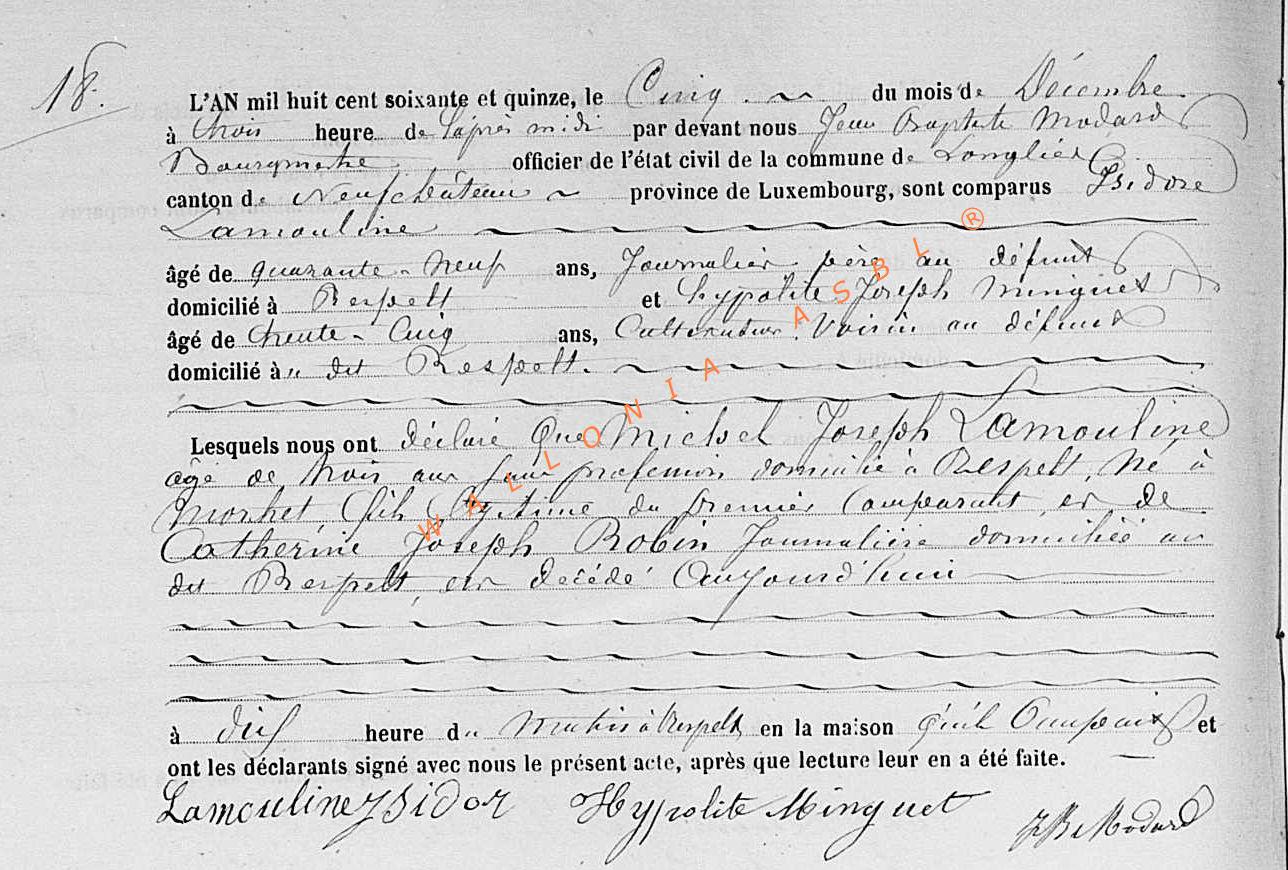 18.
L'AN mil huit cent soixante et quinze, le Cinq du mois de Décembre
à trois heure de l'après midi par devant nous Jean Baptiste Modard
Bourgmetre officier de l'état civil de la commune de Longlier
canton de Neufchâteau province de Luxembourg, sont comparus Isidore
Lamouline
âgé de quarante-neuf ans, Journalier père au défunt
domicilié à Respelt et hypolite Joseph Minguet
âgé de trente-Cinq ans, Cultivateur Voisin au défunt
domicilié à u dit Respelt.
Lesquels nous ont déclaré Que Michel Joseph Lamouline
âgé de trois ans sans profession domicilié à Respelt, Né à
Morhet, fils légitime du premier Comparant et de
Catherine Joseph Robin Journalière domiciliée au
dit Respelt, est décédé Aujourd'hui
à dix heure du Matin à Respelt en la maison qu'il Occupait et
ont les déclarants signé avec nous le présent acte, après que lecture leur en a été faite.
Lamouline ysidor Hypolite Minguet JB Modard
WALLONIA ASBL ®